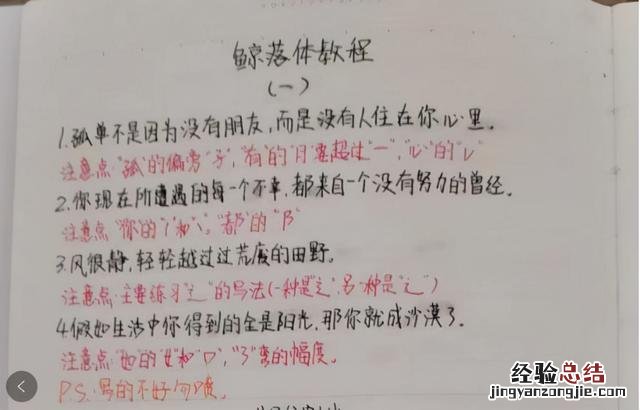 鲸落体教程
(一)
1.孤单不是因为没有朋友,而是没有人住在你心里。
注意点:"孤"的偏旁"子","有"的"月"要超过"一","心"的"乚"
2.你现在所遭遇的每一个不幸,都来自一个没有努力的曾经。
注意点:"你"的"亻"和"丶","都"的"阝"
3.风很静,轻轻越过过荒废的田野。
注意点:主要练习"辶"的写法(一种是"辶",另一种是"辶")
4.假如生活中你得到的全是阳光,那你就成沙漠了。
注意点:如的"女"和"口","了"弯的幅度。
P.S.写的不好勿喷。
经验总结
jingyanzongjie.com